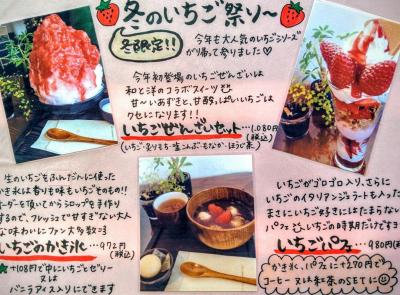 冬のいちご祭り～
冬限定!!
今年も大人気のいちごシリーズ
が帰って参りました♡
今年初登場のいちごぜんざいは
和と洋のコラボスイーツ
甘～いあずきと、甘酸っぱいいちごは
クセになります!!
いちごぜんざいセット…1,080円
(税込)
(いちご・玉りもち・塩こんぶ・もなか・ほうじ茶)
生のいちごをふんだんに使った
かき氷は香りも味もいちごそのもの!!
オーダーを頂いてからシロップを手作り
するので、フレッシュで甘すぎない大人
な味わいにファン大多数=3
いちごのかき氷…972円
(税込)
★+108円で中にいちごとゼリー
又は
バニラアイス入りにできます
いちごがゴロゴロ入り、さらに
いちごのイタリアンジェラートも入った
まさにいちご好きにはたまらない
パフェ いちごの時期だけですヨ
いちごパフェ…980円
かき氷、パフェに+270円で
コーヒー又は紅茶のSETに☺